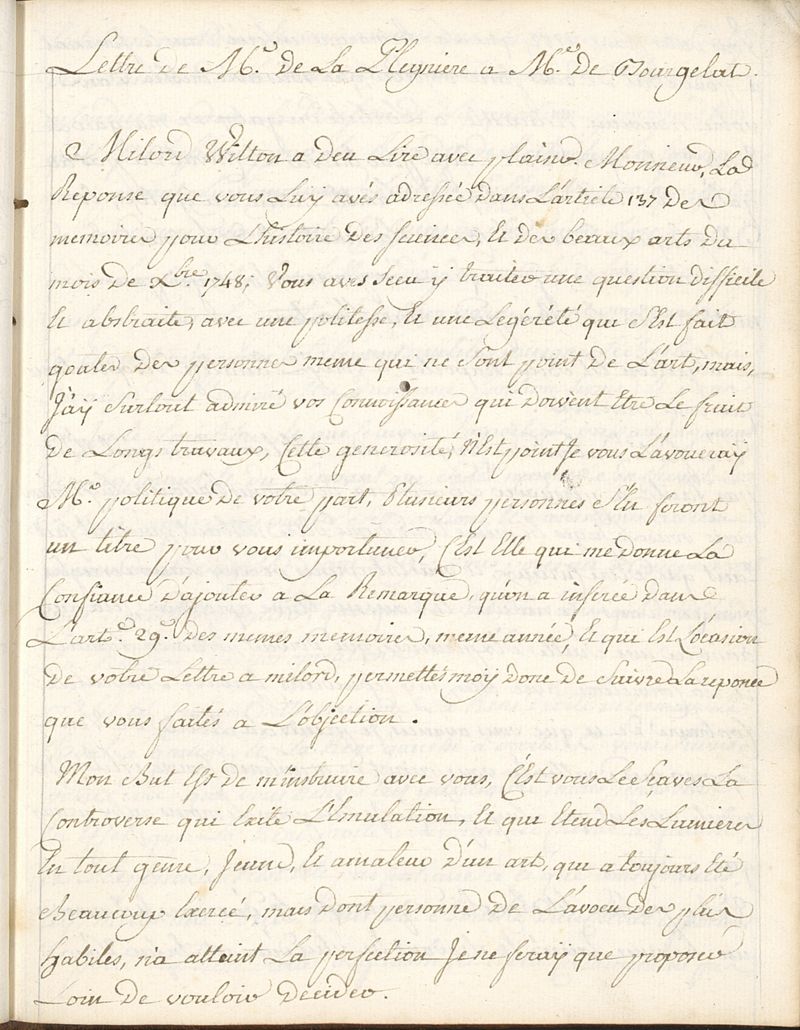 Lettre de Mr. de La Pleigniere a Mr. de Bourgelat.
2 Milord Wilton a deu Lire avec plaisir. Monsieur, La
Reponse que vous Luy avés adressée dans L'article 137 des
memoires pour L'histoire des sciences, Et des beaux arts du
mois de Xbre. 1748; Vous avés sceu ÿ traiter une question difficile
Et abstraite, avec une politesse, Et une Legéreté qui s'Est fait
gouter des personnes meme qui ne sont point de L'art, mais,
J'aÿ surtout admiré vos Connoissances qui doivent Etre Le fruit
de Longs travaux, Cette generosité, n'Est point Je vous L'avoueraÿ
Mr. politique de votre part, Plusieurs personnes s'En feront
un titre pour vous importuner, C'Est Elle qui me donne La
Confiance d'ajouter a La Remarque, qu'on a inserée dans
L'art.e 29.e des memes memoires, meme année, Et qui Est L'ocasion
de votre Lettre a milord, permettés moÿ donc de suivre La reponce
que vous faités a L'objection.
Mon But Est de m'instruire avec vous, C'Est vous Le Sçaves La
Controverse qui Exite L'Emulation, Et qui Etend Les Lumieres
En tout genre, Jeune, Et amateur d'un art, qui a toujours Eté
Beaucoup Exercé, mais dont personne de L'avoeu des plus
habiles, n'a atteint La perfection Je ne feraÿ que proposer
Loin de vouloir decider.